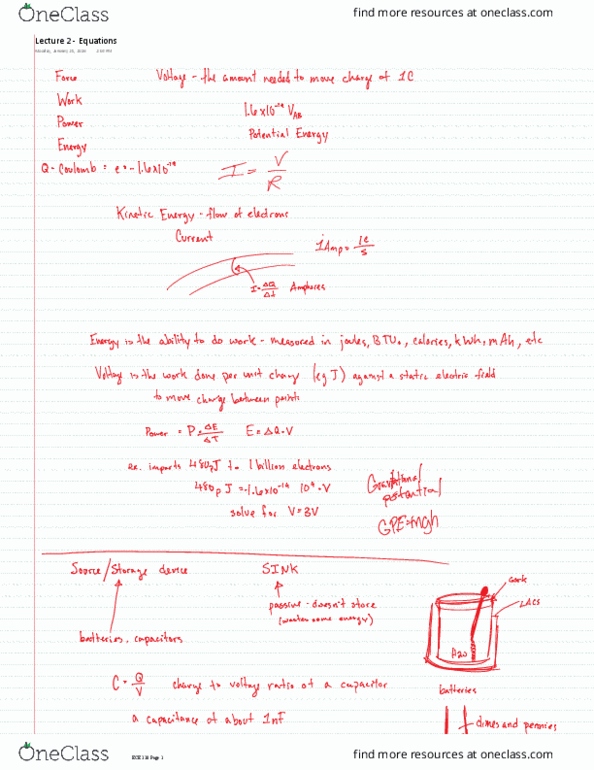 OneClass
find more resources at oneclass.com
Lecture 2 - Equations
Force
Voltage - the amount needed to move charge of 1C
Work
1.6x10⁻¹⁹ V_AB
Power
Potential Energy
Energy
Q - Coulomb = e = -1.6x10⁻¹⁹
I = V/R
Kinetic Energy - flow of electrons
Current
1 Amp = 1c/s
I = ΔQ/Δt Amperes
Energy is the ability to do work - measured in joules, BTU., calories, kWh, mAh, etc
Voltage is the work done per unit charg (eg J) against a static electric field
to move charge between points
Power = P = ΔE/ΔT E = ΔQ·V
ex. imparts 480pJ to 1 billion electrons
480p J = -1.6x10⁻¹⁹ 10⁹ · V
solve for V=3V
Gravitational
potential
GPE=mgh
Source/Storage device
SINK
passive - doesn't store
(wastes some energy)
batteries, capacitors
H2O
C = Q/V charge to voltage ratio of a capacitor
batteries
a capacitance of about 1nF
dimes and pennies
OneClass
Page 1
find more resources at oneclass.com